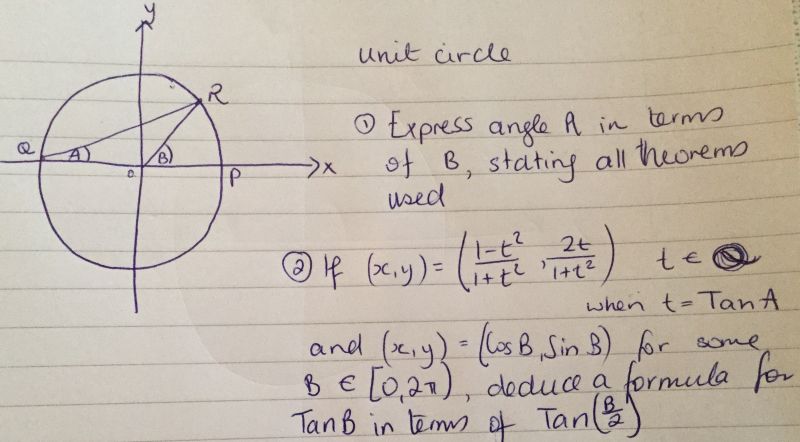 y
unit circle
R
① Express angle A in terms
of B, stating all theorems
used
Q A) B)
O P x
② If (x,y) = (1-t²/1+t², 2t/1+t²) t ∈
when t = Tan A
and (x,y) = (Cos B, Sin B) for some
B ∈ [0,2π), deduce a formula for
Tan B in terms of Tan(B/2)